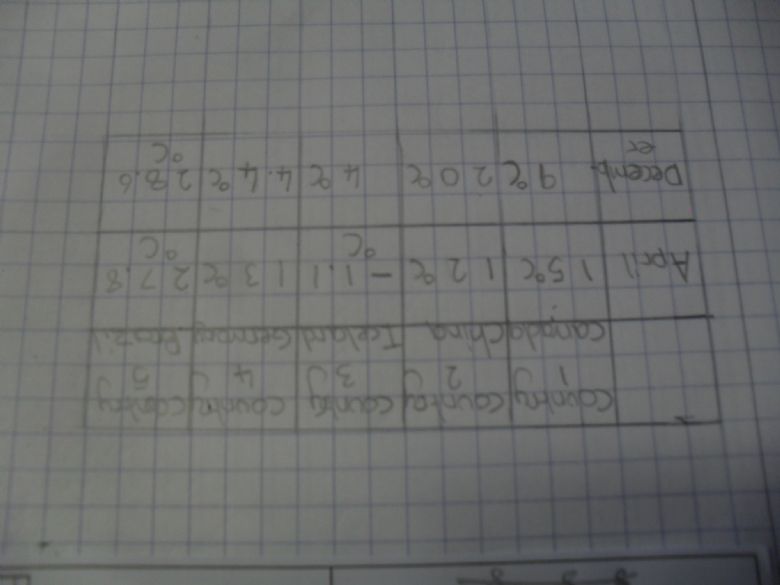 country country country country country
1 2 3 4 5
canada china Iceland Germany Brazil
April 15°C 12°C -1.1 13°C 27.8
°C °C
Decemb. 9°C 20°C 4°C 4.4°C 28.6
er °C